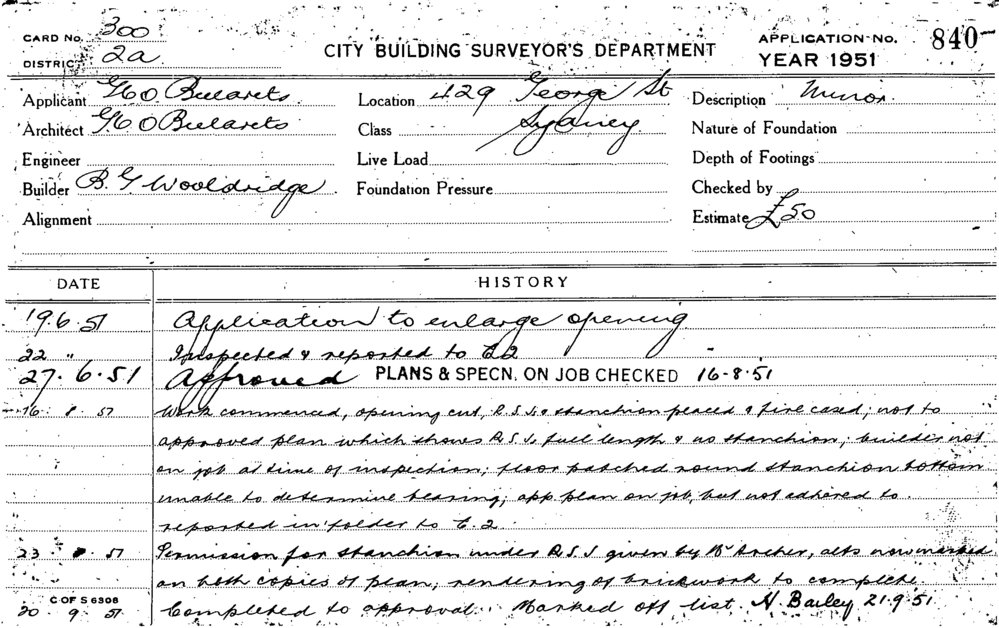 CARD No. 300
DISTRICT 2a
CITY BUILDING SURVEYOR'S DEPARTMENT
APPLICATION No. 840
YEAR 1951
Applicant G H O
Location 429 George St
Description Minor
Architect G H O
Class Sydney
Nature of Foundation
Engineer
Live Load
Depth of Footings
Builder B. G Wooldridge
Foundation Pressure
Checked by
Alignment
Estimate £50
DATE HISTORY
19.6.51 Application to enlarge opening
22 " Inspected & reported to C2
27.6.51 Approved PLANS & SPECN. ON JOB CHECKED 16-8-51
16.8.51 Work commenced, opening cut, R.S.J. & stanchion placed & fire cased; not to
approved plan which shows R.S.J. full length & no stanchion; builder not
on job at time of inspection; floor patched round stanchion bottom
unable to determine bearing; app. plan on job, but not adhered to.
reported in folder to C.2
23. .51 Permission for stanchion under R.S.J given by Mr Archer, alts now marked
on both copies of plan; rendering of brickwork to complete.
C OF S 6306
20.9.51 Completed to approval. Marked off list. H. Bailey 21.9.51